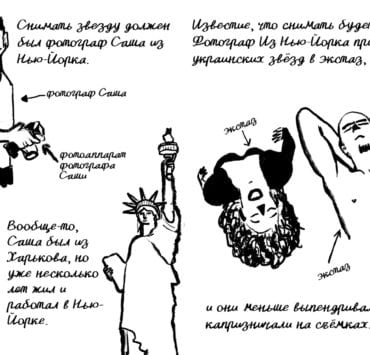 Снимать звезду должен
был фотограф Саша из
Нью-Йорка.
фотограф Саша
фотоаппарат
фотографа
Саши
Вообще-то,
Саша был из
Харькова, но
уже несколько
лет жил и
работал в Нью-
Йорке.
Известие, что снимать
Фотограф Из Нью-Йорка
украинских звёзд в экстаз,
экстаз
экстаз
и они меньше
капризничали на съёмках.